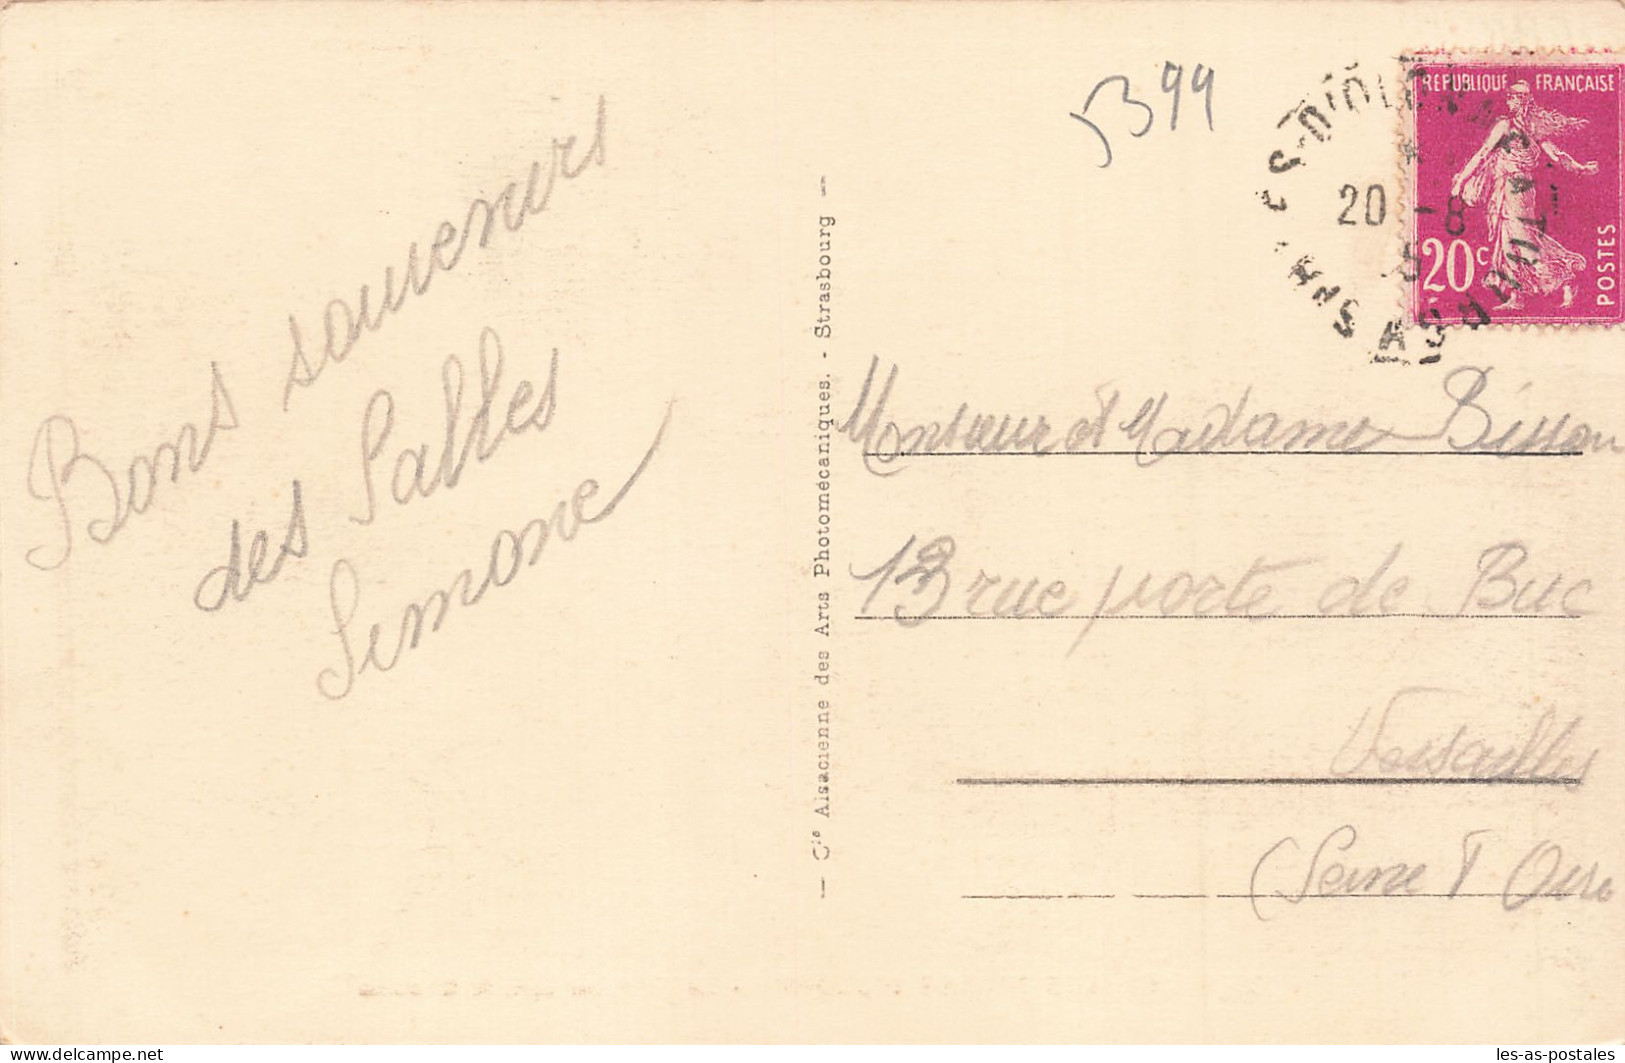 5399
RÉPUBLIQUE FRANÇAISE
20c
POSTES
LES SABLES-D'OLONNE
20 -8
Bons souvenirs
des Salles
Simone
— Cie Alsacienne des Arts Photomécaniques. - Strasbourg —
Monsieur et Madame Bisson
13 rue porte de Buc
Versailles
(Seine & Oise
Delcampe.net
les-as-postales